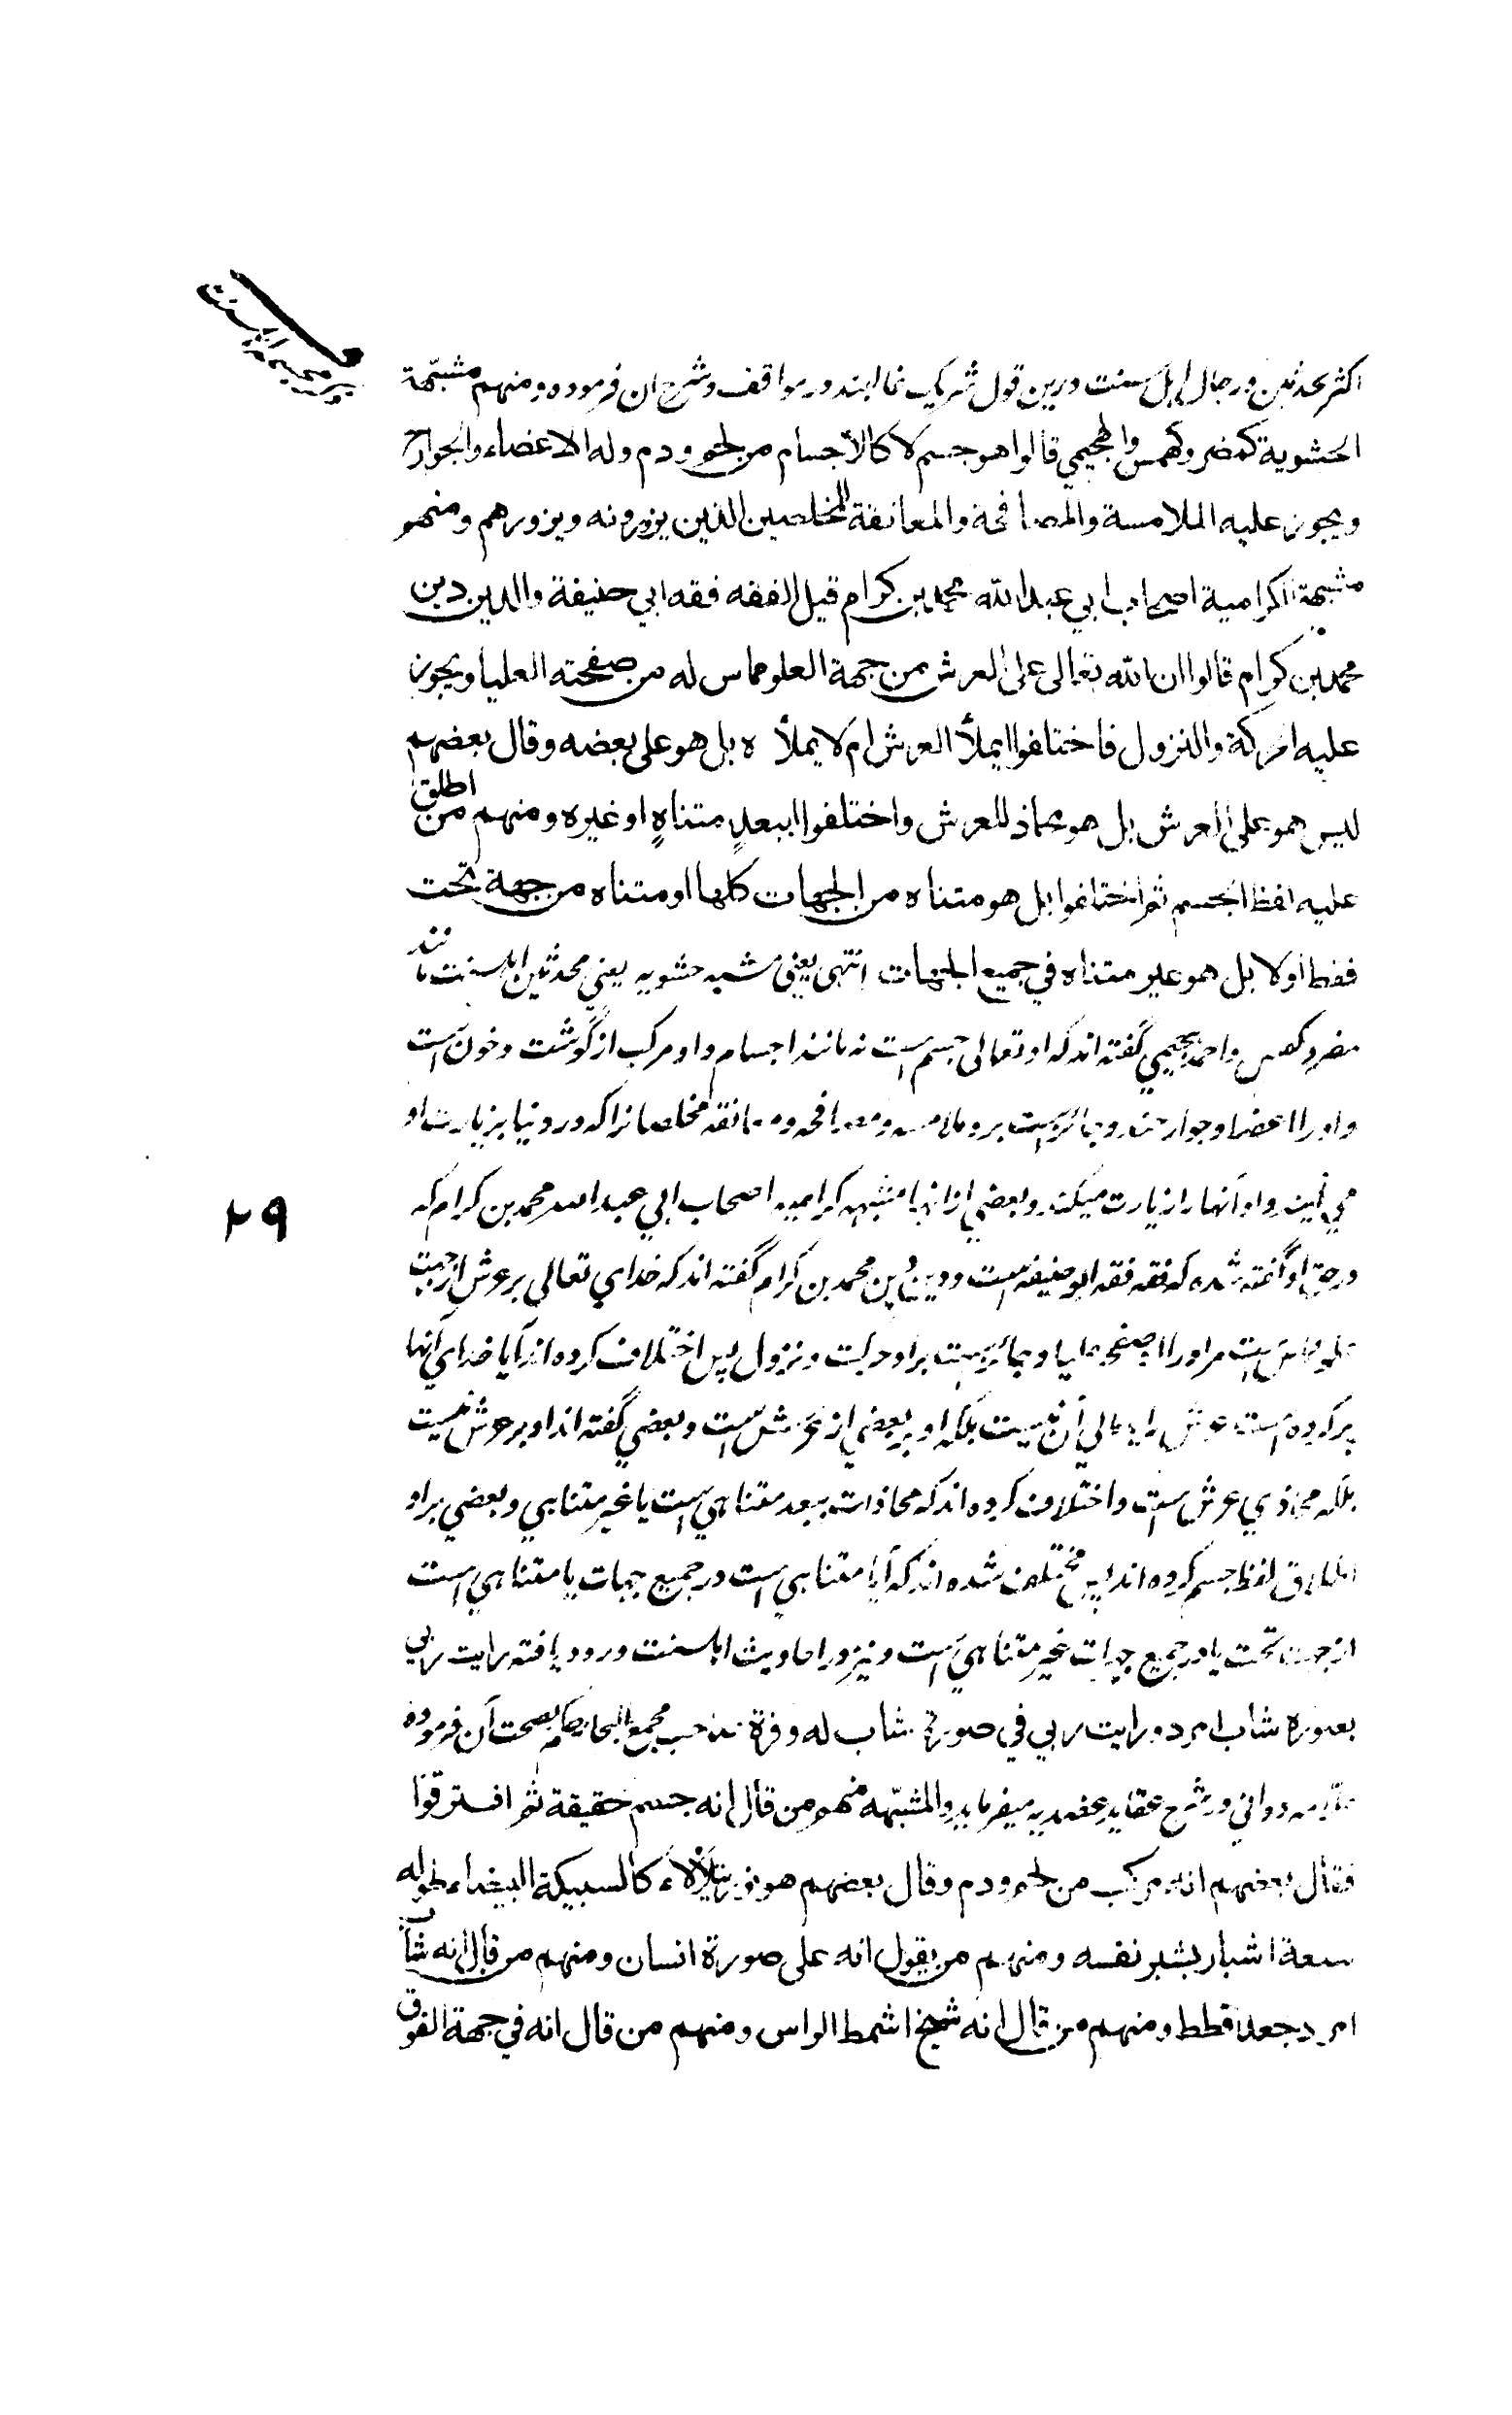 اکثر محدثین و رجال اہل سنت درین قول شریک غالبند در مواقف و شرح ان فرموده ومنهم مشبّهة
الحشوية كمضر وكهمس والهجيمي قالوا هو جسم لا كالأجسام من لحم ودم وله الاعضاء والجوارح
ويجوز عليه الملامسة والمصافحة والمعانقة للمخلصين الذين يزورونه ويزورهم ومنهم
مشبهة الكرامية اصحاب ابي عبد الله محمد بن كرام قيل الفقه فقه ابي حنيفة والدين دين
محمد بن كرام قالوا ان الله تعالى على العرش من جهة العلو مماس له من صفحته العليا ويجوز
عليه الحركة والنزول فاختلفوا ايملأ العرش ام لا يملأ ه بل هو على بعضه وقال بعضهم
ليس هو على العرش بل هو محاذ للعرش واختلفوا ابعدٍ متناهٍ او غيره ومنهم من اطلق
عليه لفظ الجسم ثم اختلفوا بل هو متناه من الجهات كلها او متناه من جهة تحت
فقط اولا بل هو غير متناه في جميع الجهات انتہی یعنی مشبہہ حشویہ یعنی محدثین اہل سنت مانند
مضر و کہمس و احمد ہجیمی گفته اند که او تعالی جسم است نه مانند اجسام و او مرکب از گوشت و خون است
و او را اعضا و جوارحند و جائز است برو ملامسه و مصافحه و معانقه مخلصانرا که در دنیا بزیارت او
می آیند و او آنها را زیارت میکند و بعضی ازانہا مشبہہ کرامیہ اصحاب ابی عبد الله محمد بن کرام که
در حق او گفته شده که فقه فقه ابو حنیفه است و دین دین محمد بن کرام گفته اند که خدای تعالی بر عرش از جہت
علو مماس است مر او را از صفحه علیا و جائز است بر او حرکت و نزول پس اختلاف کرده اند آیا خدای آنها
پر کرده است عرش را یا مالی آن نیست بلکه او بر بعضی از عرش است و بعضی گفته اند او بر عرش نیست
بلکه محاذی عرش است و اختلاف کرده اند که محاذات ببعد متناہی است یا غیر متناہی و بعضی بر او
اطلاق لفظ جسم کرده اند پس مختلف شده اند که آیا متناہی است در جمیع جہات یا متناہی است
از جہت تحت یا در جمیع جہات غیر متناہی است و نیز در احادیث اہل سنت ورود یافته رایت ربي
بصورة شاب امرد و رایت ربي في صورة شاب له وفرة صاحب مجمع البحار حکم بصحت آن فرموده
علامه دوانی در شرح عقاید عضدیه میفرماید والمشبّهه منهم من قال انه جسم حقيقة ثم افترقوا
فقال بعضهم انه مركب من لحم ودم وقال بعضهم هو نور يتلألأ كالسبيكة البيضاء طوله
سبعة اشبار بشبر نفسه ومنهم من يقول انه على صورة انسان ومنهم من قال انه شاب
امرد جعد قطط ومنهم من قال انه شيخ اشمط الراس ومنهم من قال انه في جهة الفوق
۲۹